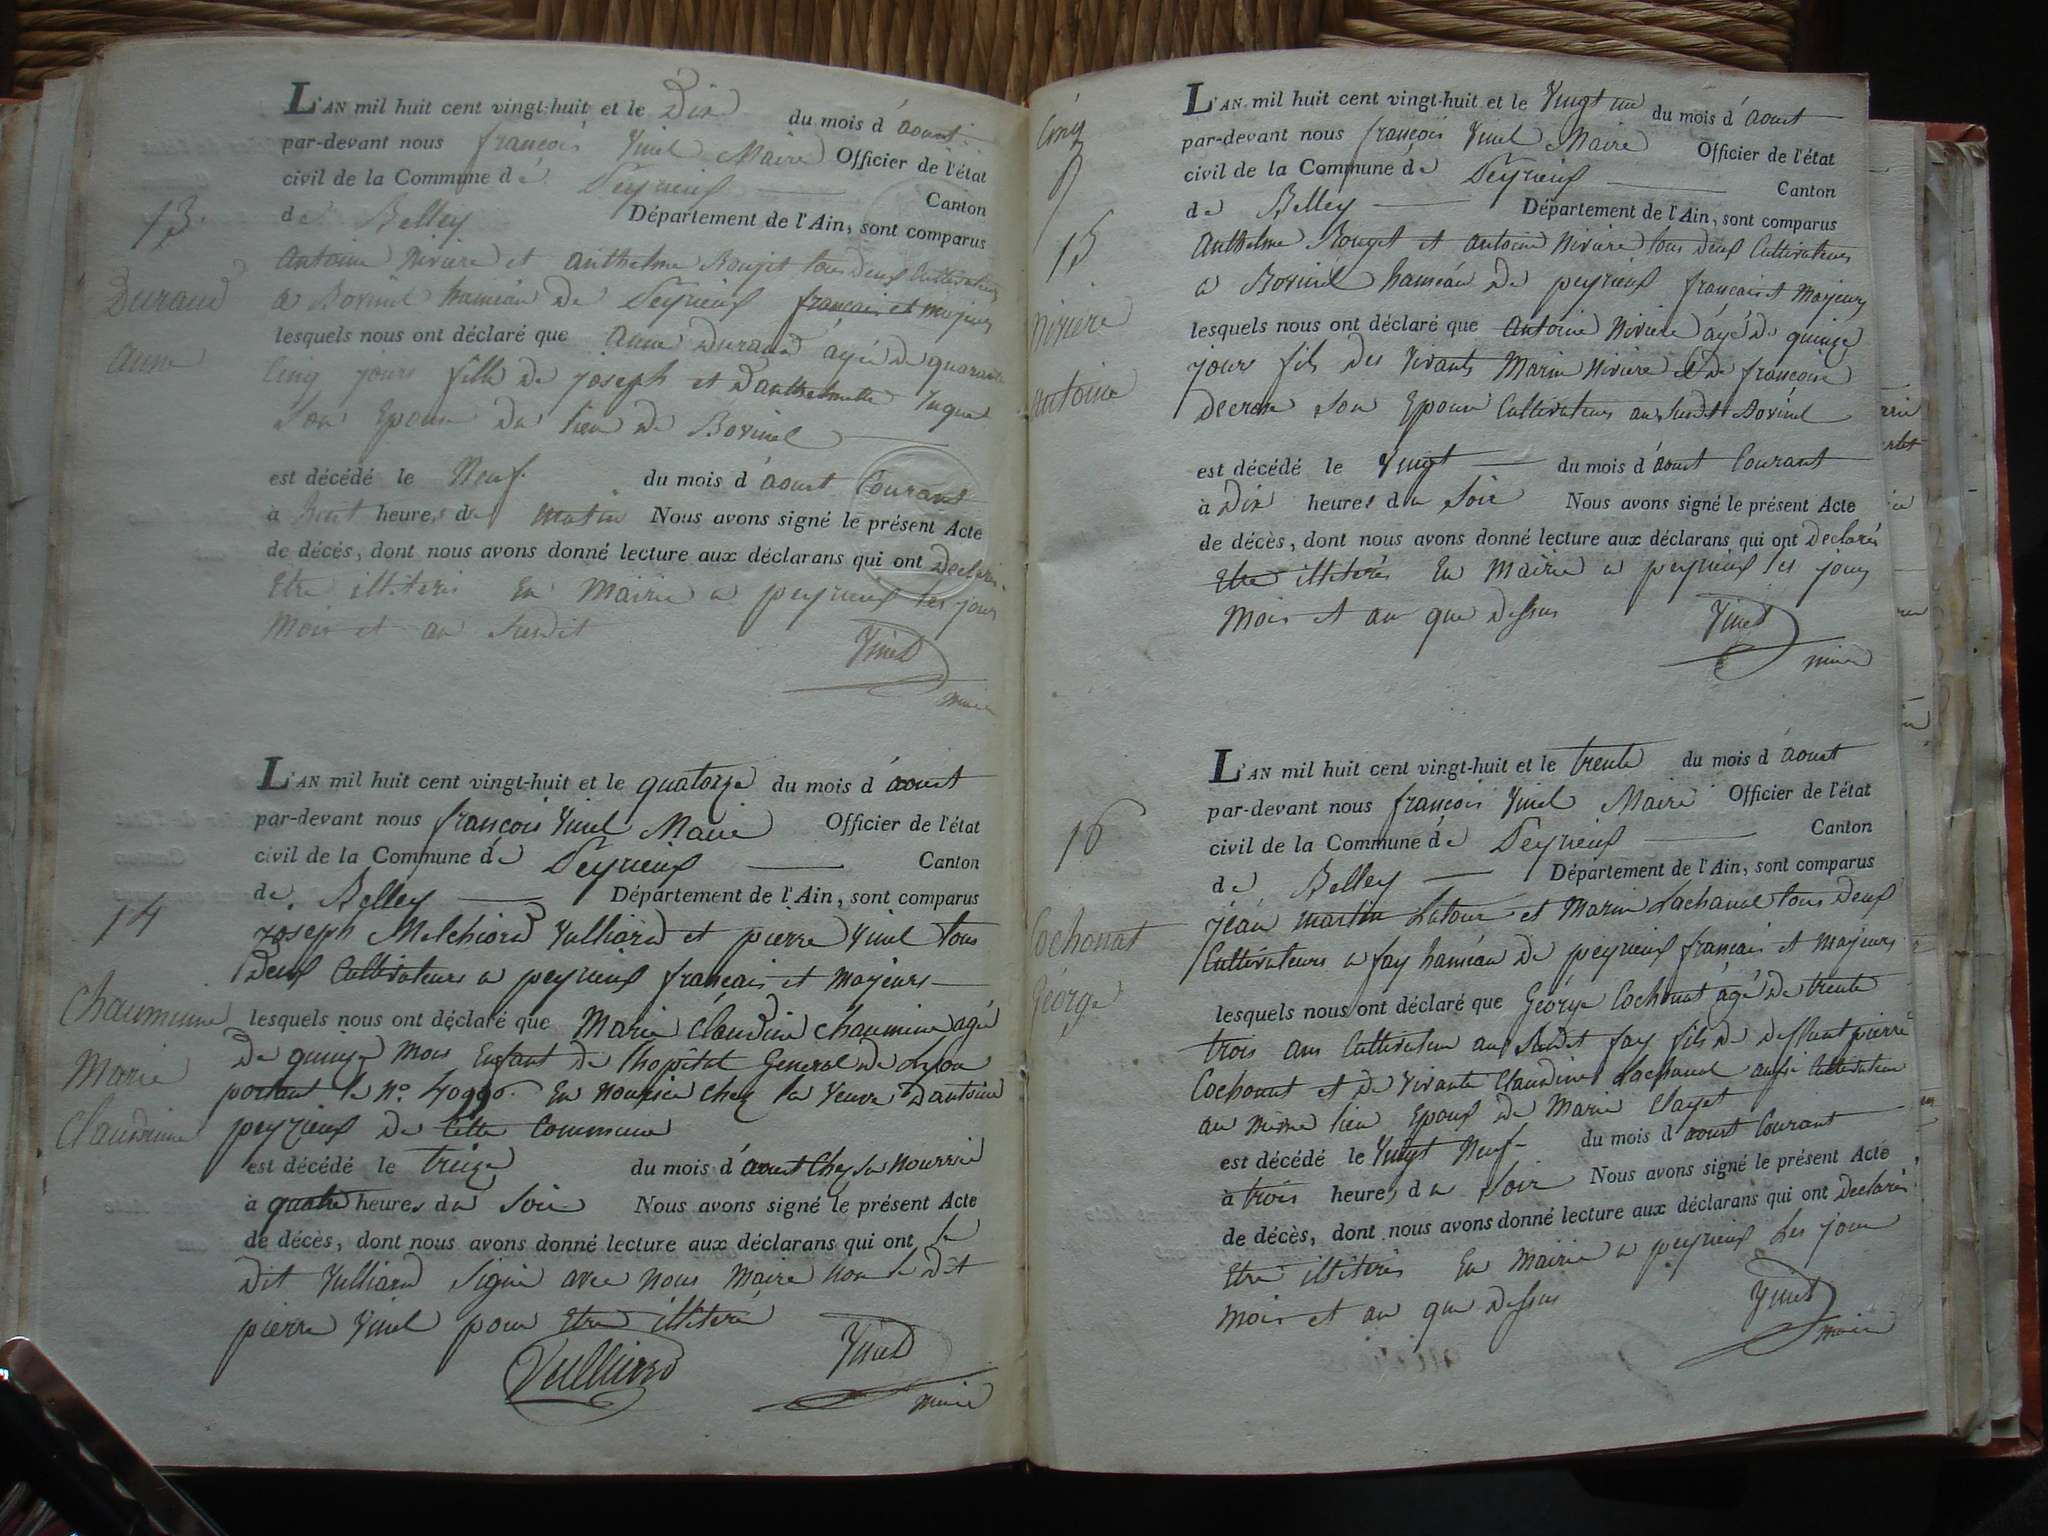 13.
Durand
anne
L'AN mil huit cent vingt-huit et le Dix du mois d'aoust
par-devant nous françois Yinel Maire Officier de l'état
civil de la Commune de Peyrieux Canton
de Belley Département de l'Ain, sont comparus
Antoine Niviere et anthelme Rouget tous deux Cultivateurs
a Bovinel hameau De Peyrieux francais et majeurs
lesquels nous ont déclaré que anne Durand âgée de quarante
Cinq jours fille De joseph et D'anthelmette
Son Epouse du lieu De Bovinel
est décédé le Neuf du mois d'aoust Courant
à huit heures du matin Nous avons signé le présent Acte
de décès, dont nous avons donné lecture aux déclarans qui ont Declarés
Etre illiterés En Mairie a peyrieux les jour
Mois et an Susdit
Yinel
maire
14
Chaumienne
Marie
Claudine
L'AN mil huit cent vingt-huit et le quatorze du mois d'aoust
par-devant nous françois Yinel Maire Officier de l'état
civil de la Commune de Peyrieux Canton
de Belley Département de l'Ain, sont comparus
joseph Melchiord Vulliard et pierre Yinel tous
Deux Cultivateurs a peyrieux francais et majeurs
lesquels nous ont déclaré que Marie Claudine Chaumine agé
De quinze mois Enfant de lhopital General de Lyon
portant le n° En nourrice Chez la Veuve D'antoine
peyrieux De Cette Commune
est décédé le treize du mois d'aoust Chez sa Nourrice
à quatre heures du Soir Nous avons signé le présent Acte
de décès, dont nous avons donné lecture aux déclarans qui ont le
dit Vulliard Signé avec nous Maire non le Dit
pierre Yinel pour Etre illiteré
Vulliard
Yinel
maire
Cinq
15
Niviere
antoine
L'AN mil huit cent vingt-huit et le Vingt un du mois d'aoust
par-devant nous françois Yinel Maire Officier de l'état
civil de la Commune de Peyrieux Canton
de Belley Département de l'Ain, sont comparus
Anthelme Rouget et antoine Niviere tous deux Cultivateurs
a Bovinel hameau De peyrieux francais et Majeurs
lesquels nous ont déclaré que Antoine Niviere âgé De quinze
jours fils des Vivants Marin Niviere et De françoise
Son Epouse Cultivateurs au Susdit Bovinel
est décédé le Vingt du mois d'aoust Courant
à Dix heures du Soir Nous avons signé le présent Acte
de décès, dont nous avons donné lecture aux déclarans qui ont Declarés
Etre illiterés En Mairie a peyrieux les jour
Mois et an que Dessus
Yinel
maire
16
Cochonat
George
L'AN mil huit cent vingt-huit et le trente du mois d'aoust
par-devant nous françois Yinel Maire Officier de l'état
civil de la Commune de Peyrieux Canton
de Belley Département de l'Ain, sont comparus
jean martin Latour et Marin Lachanal tous deux
Cultivateurs a fay hameau De peyrieux francais et Majeurs
lesquels nous ont déclaré que George Cochonat âgé De trente
trois ans Cultivateur au Susdit fay fils De deffunt pierre
Cochonat et de Vivante Claudine Lachanal aussi Cultivateur
au même lieu Epoux de Marie Clayet
est décédé le Vingt Neuf du mois d'aoust Courant
à trois heures du Soir Nous avons signé le présent Acte
de décès, dont nous avons donné lecture aux déclarans qui ont Declarés
Etre illiterés En Mairie a peyrieux Les jour
Mois et an que Dessus
Yinel
maire